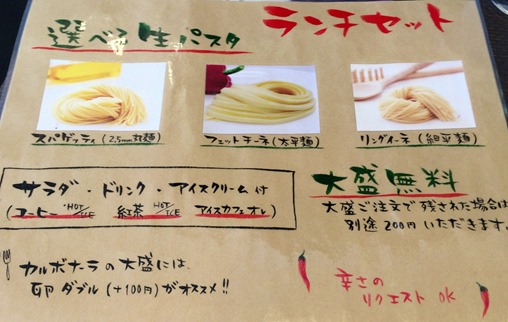 ランチセット
選べる生パスタ
スパゲッティ(2.5mm丸麺)
フェットチーネ(太平麺)
リングイーネ(細平麺)
サラダ・ドリンク・アイスクリーム付
(コーヒー HOT/ICE 紅茶 HOT/ICE アイスカフェオレ)
大盛無料
大盛ご注文で残された場合は
別途200円いただきます。
カルボナーラの大盛には、
卵ダブル(+100円)がオススメ!!
辛さの
リクエスト OK